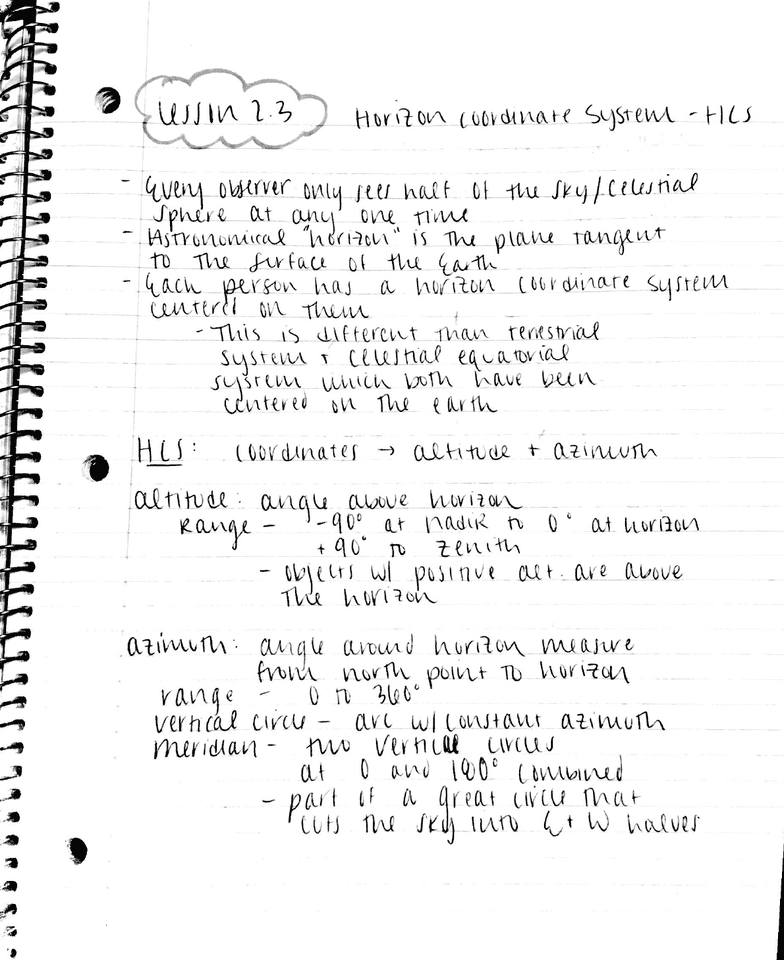 Lesson 2.3
Horizon Coordinate System - HCS
- Every observer only sees half of the sky/celestial
sphere at any one time
- Astronomical "horizon" is the plane tangent
to the surface of the Earth
- Each person has a horizon coordinate system
centered on them
- This is different than terrestrial
system + celestial equatorial
system which both have been
centered on the earth
HCS: coordinates → altitude + azimuth
altitude: angle above horizon
Range - -90° at nadir to 0° at horizon
+90° to zenith
- objects w/ positive alt. are above
the horizon
azimuth: angle around horizon measure
from north point to horizon
range - 0 to 360°
vertical circle - arc w/ constant azimuth
meridian - two vertical circles
at 0 and 180° combined
- part of a great circle that
cuts the sky into E + W halves